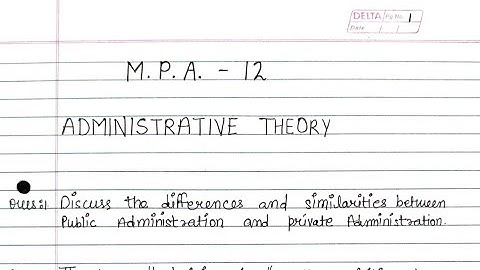 DELTA Pg No. 1
DATE / /
M.P.A. - 12
ADMINISTRATIVE THEORY
Ques:1 Discuss the differences and similarities between
Public Administration and private Administration.